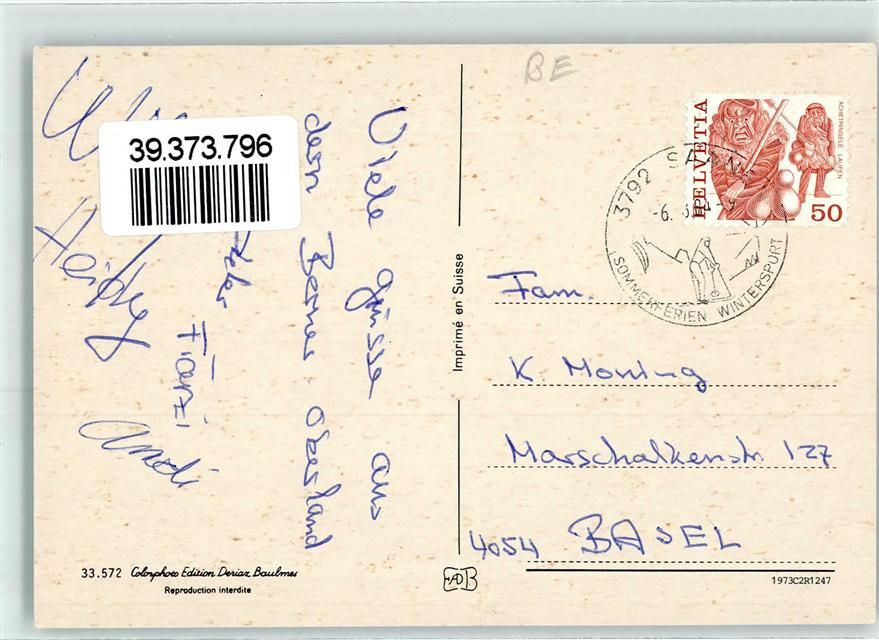 BE
39.373.796
Viele grüsse aus
dem Berner Oberland
Peter
Fränzi
Heidy
HELVETIA
ACHETRINGELE LAUPEN
50
3792 SAANEN
SOMMERFERIEN WINTERSPORT
Fam.
K. Moning
Marschalkenstr. 127
4054 BASEL
Imprimé en Suisse
33.572 Colorphoto Edition Deriaz Baulmes
Reproduction interdite
1973C2R1247